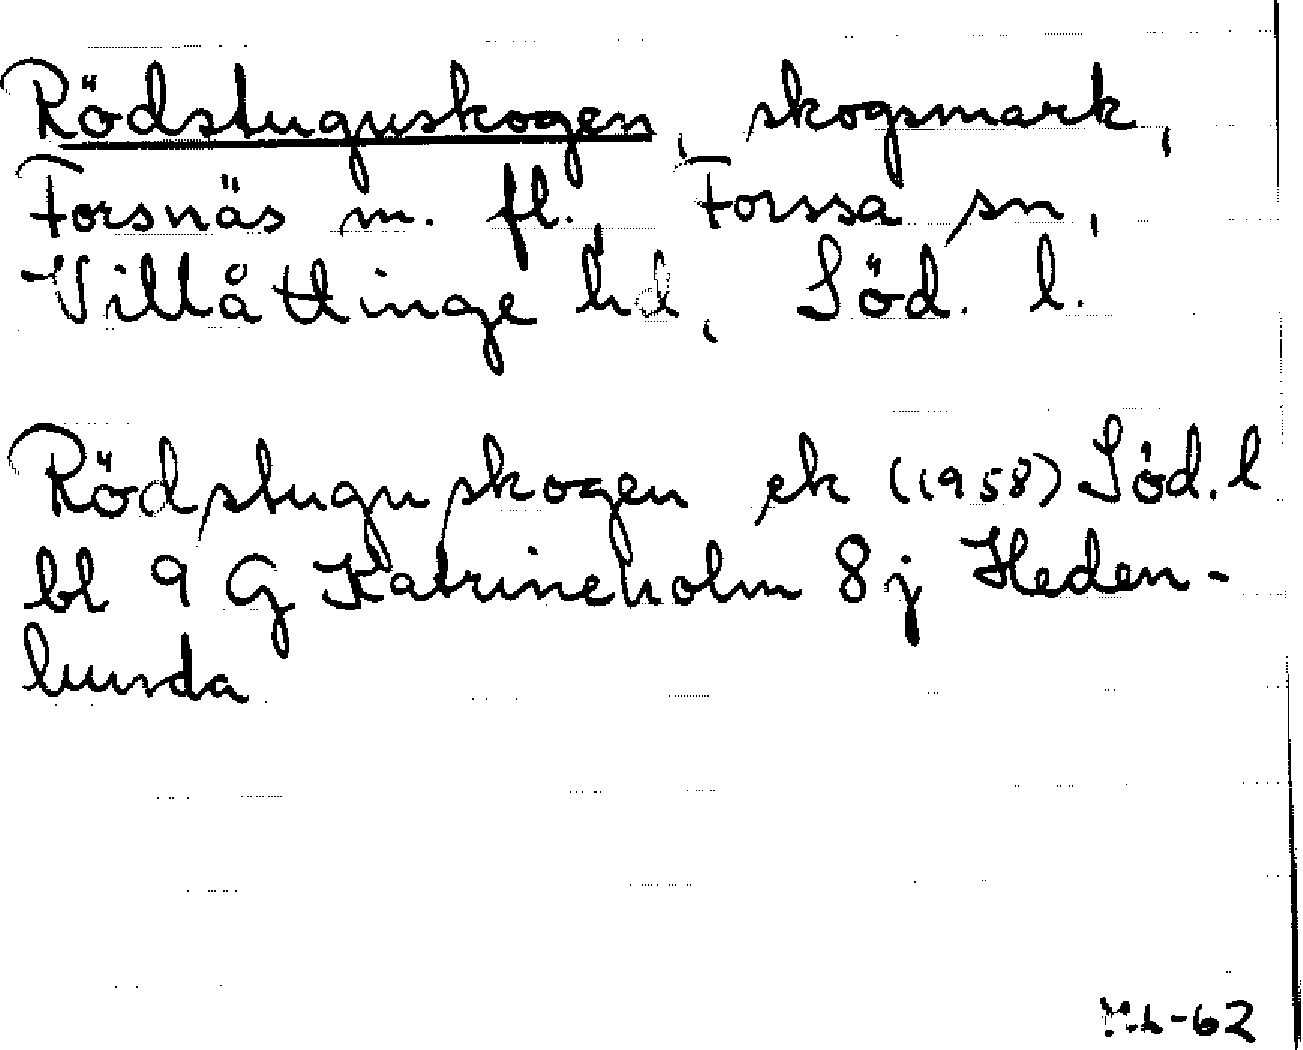 Rödstuguskogen, skogsmark,
Forsnäs m. fl., Forssa sn,
Villåttinge hd, Söd. l.
Rödstuguskogen ek (1958) Söd. l
bl 9 G Katrineholm 8 j Heden-
lunda
-62